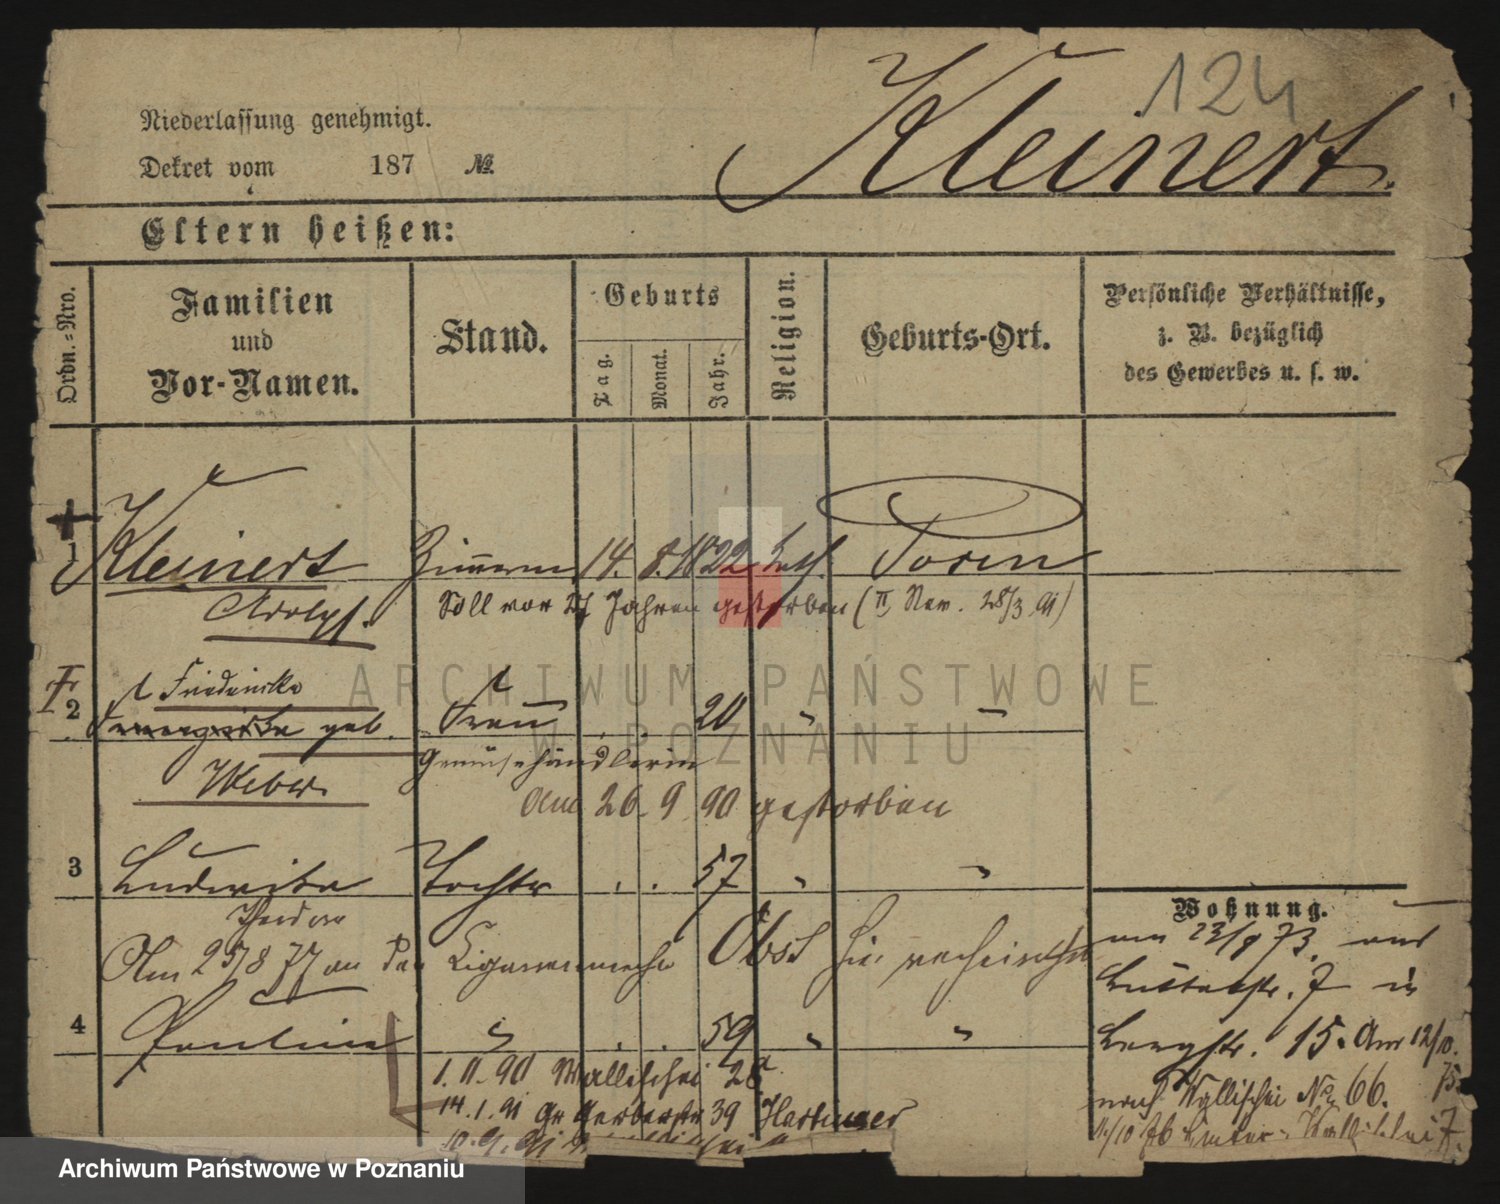 124
Kleinert.
Niederlassung genehmigt.
Dekret vom 187 №
Eltern heißen:
Ordn.-Nro.
Familien
und
Vor-Namen.
Stand.
Geburts
Tag.
Monat.
Jahr.
Religion.
Geburts-Ort.
Persönliche Verhältnisse,
z. B. bezüglich
des Gewerbes u. s. w.
1 Kleinert 14. 8. 1822 Posen
Adolph.
Soll vor 27 Jahren gestorben (II Nev. 28/3 91)
2 Friederike Frau 20 "
geb.
Weber Gemüsehändlerin
am 26. 9. 90 gestorben
3 Ludwika Tochter . . 57 " "
Theodor
Am 25/8 77 an den Obst
4 Pauline " . . 59 " "
1. 11. 90 Wallischei 28a
14. 1. 91 Gr Gerberstr 39 Hartinger
Wohnung.
am 23/9 73. aus
7 in
Bergstr. 15. Am 12/10.
75.
nach Wallischei No 66.
11/10 76 Wallischei 7.
ARCHIWUM PAŃSTWOWE
W POZNANIU
Archiwum Państwowe w Poznaniu